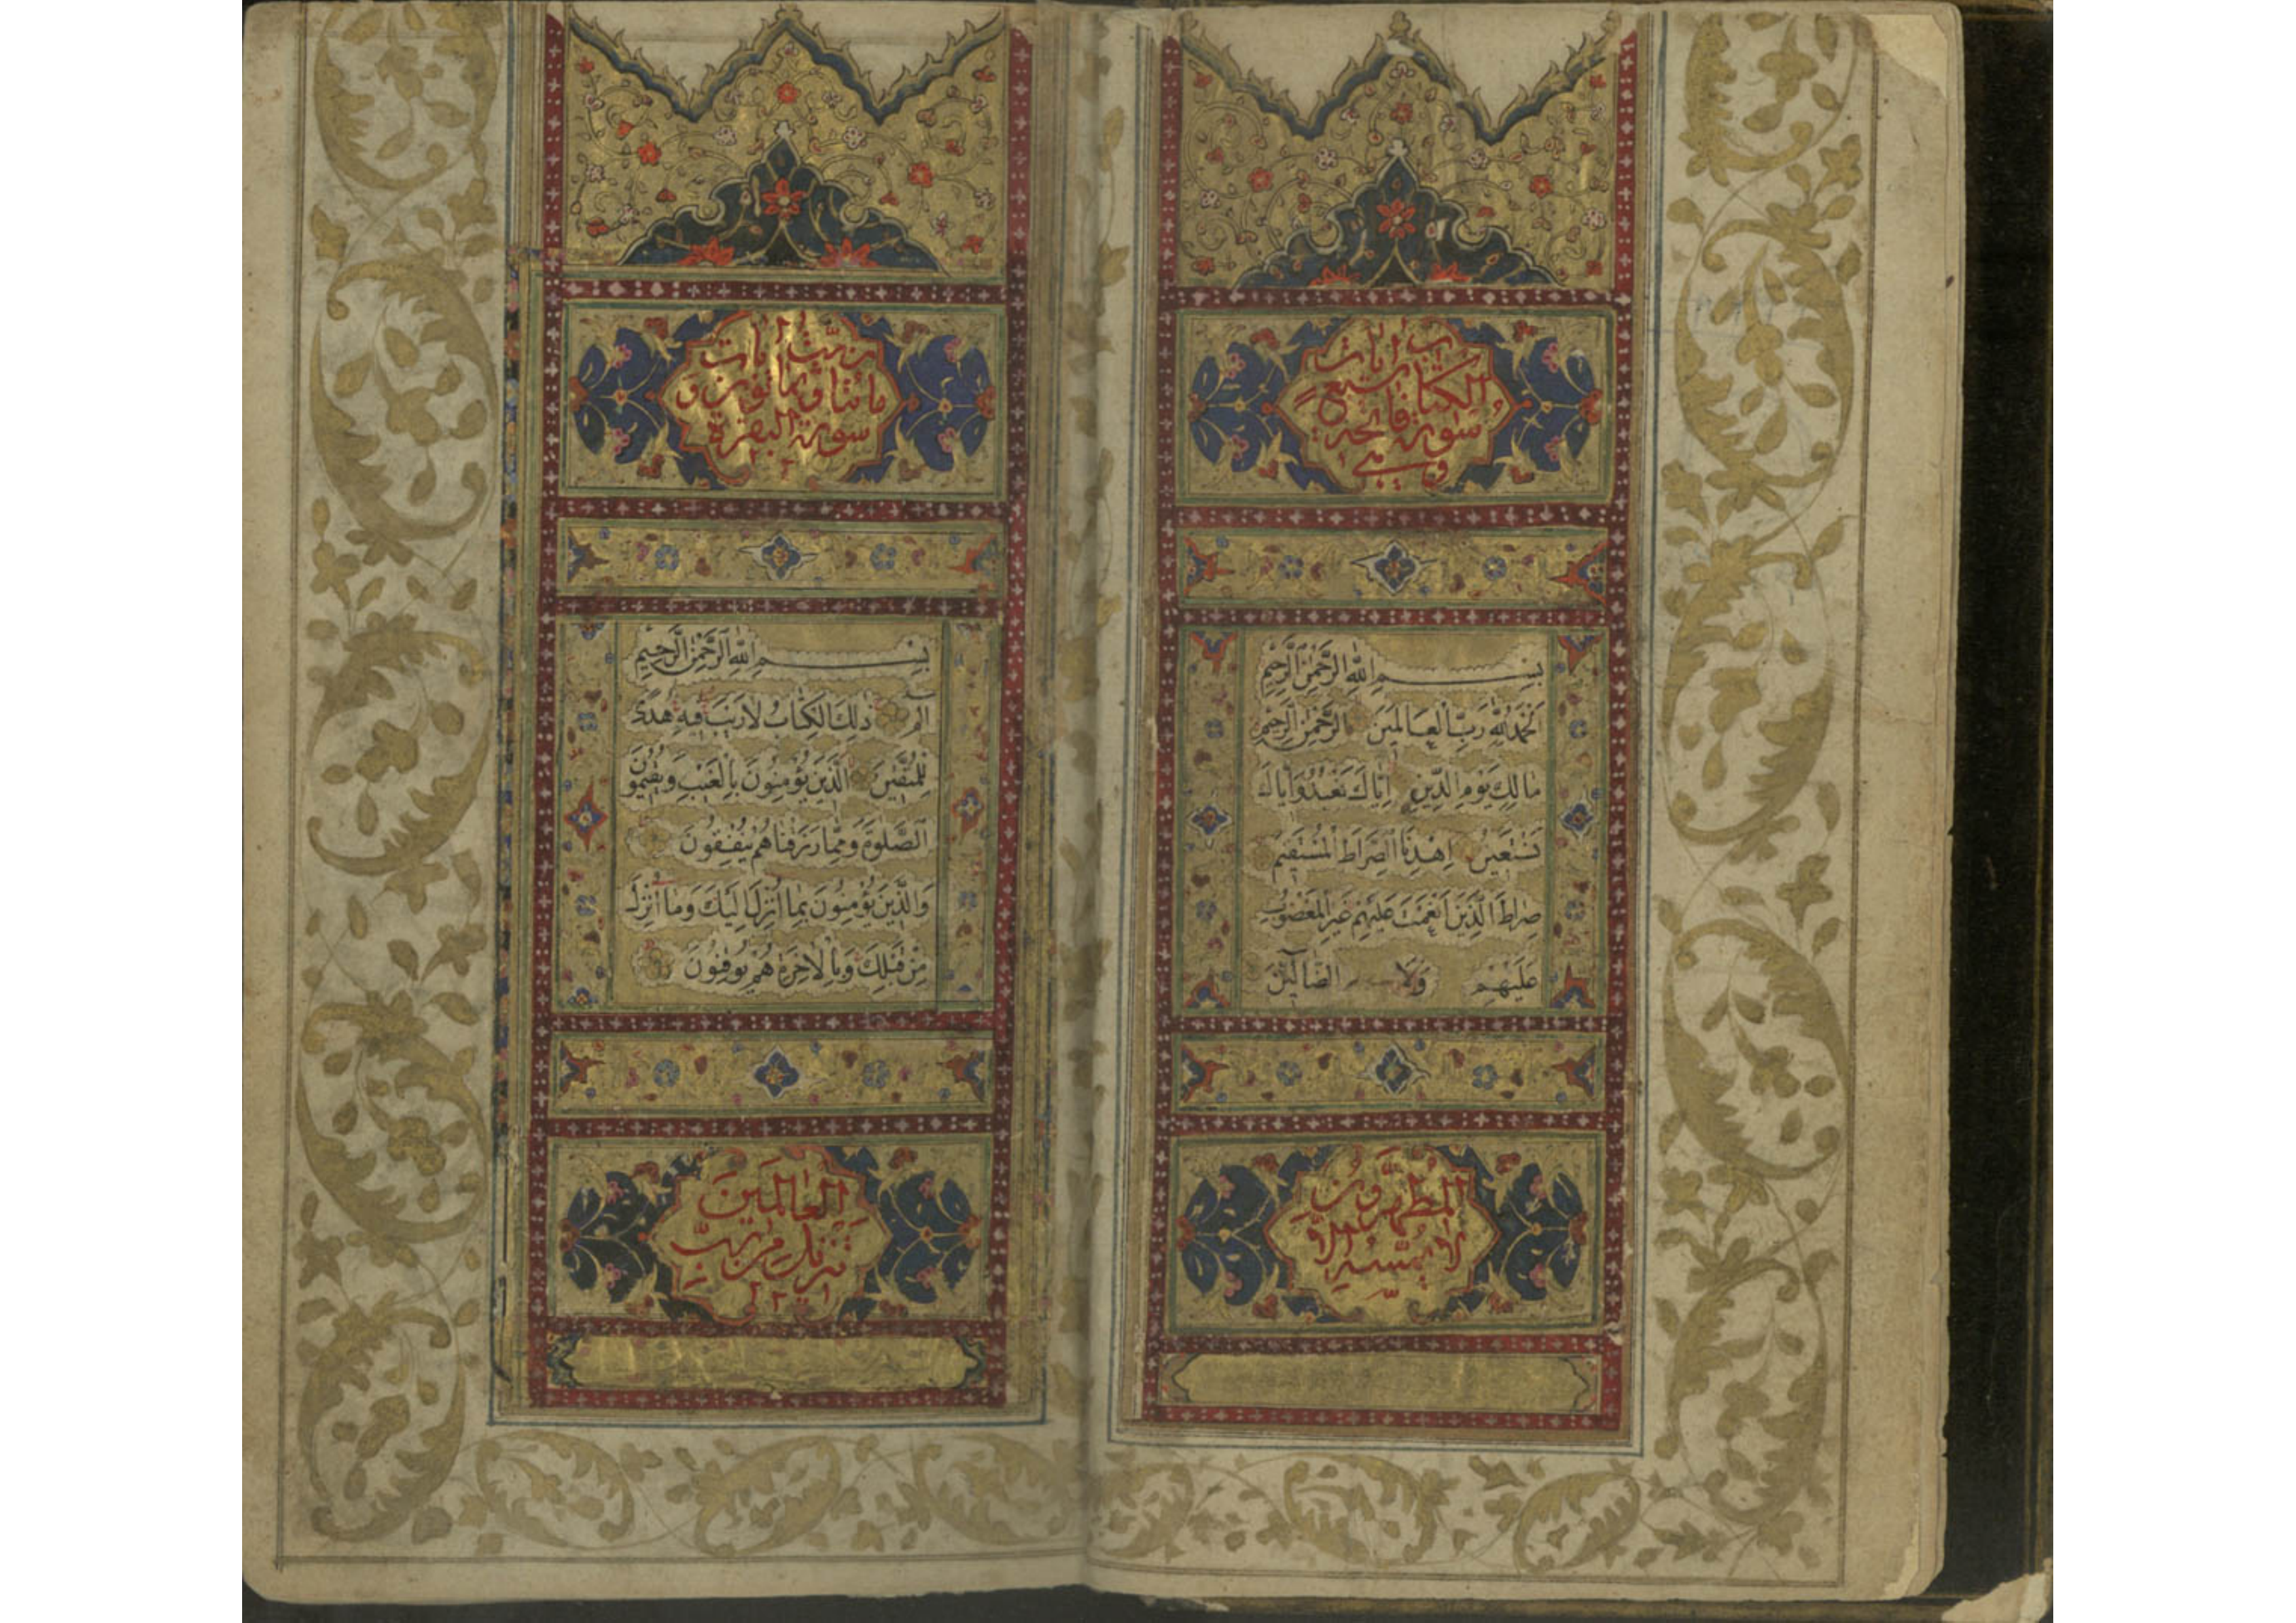 ب ايات
الكتاب سبع
سورة فاتحة
وهي
بِسْمِ اللّٰهِ الرَّحْمٰنِ الرَّحِيْمِ
اَلْحَمْدُ لِلّٰهِ رَبِّ الْعَالَمِيْنَ الرَّحْمٰنِ الرَّحِيْمِ
مَالِكِ يَوْمِ الدِّيْنِ اِيَّاكَ نَعْبُدُ وَاِيَّاكَ
نَسْتَعِيْنُ اِهْدِنَا الصِّرَاطَ الْمُسْتَقِيْمَ
صِرَاطَ الَّذِيْنَ اَنْعَمْتَ عَلَيْهِمْ غَيْرِ الْمَغْضُوْبِ
عَلَيْهِمْ وَلَا الضَّالِّيْنَ
الْمُطَهَّرُوْنَ
لَا يَمَسُّهُ اِلَّا
ايات
مائتا و ثمانون و
سورة البقرة
بِسْمِ اللّٰهِ الرَّحْمٰنِ الرَّحِيْمِ
الٓم ذٰلِكَ الْكِتَابُ لَا رَيْبَ فِيْهِ هُدًى
لِلْمُتَّقِيْنَ اَلَّذِيْنَ يُؤْمِنُوْنَ بِالْغَيْبِ وَيُقِيْمُوْنَ
الصَّلٰوةَ وَمِمَّا رَزَقْنَاهُمْ يُنْفِقُوْنَ
وَالَّذِيْنَ يُؤْمِنُوْنَ بِمَا اُنْزِلَ اِلَيْكَ وَمَا اُنْزِلَ
مِنْ قَبْلِكَ وَبِالْاٰخِرَةِ هُمْ يُوْقِنُوْنَ
الْعَالَمِيْنَ
تَنْزِيْلٌ مِنْ رَبِّ